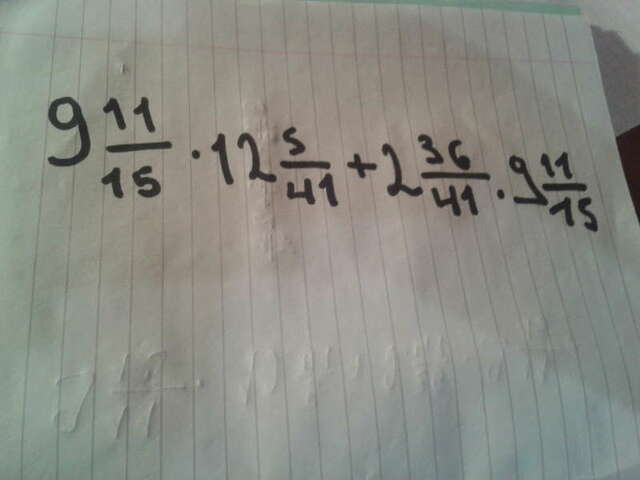 9 11/15 · 12 5/41 + 2 36/41 · 9 11/15